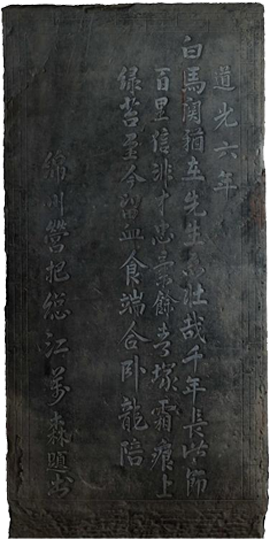 道光六年
白馬關猶在先生亦壯哉千年長伴節
百里信非才忠骨餘青塚霜痕上
綠苔至今留血食端合臥龍陪
綿州營把總江萬森題